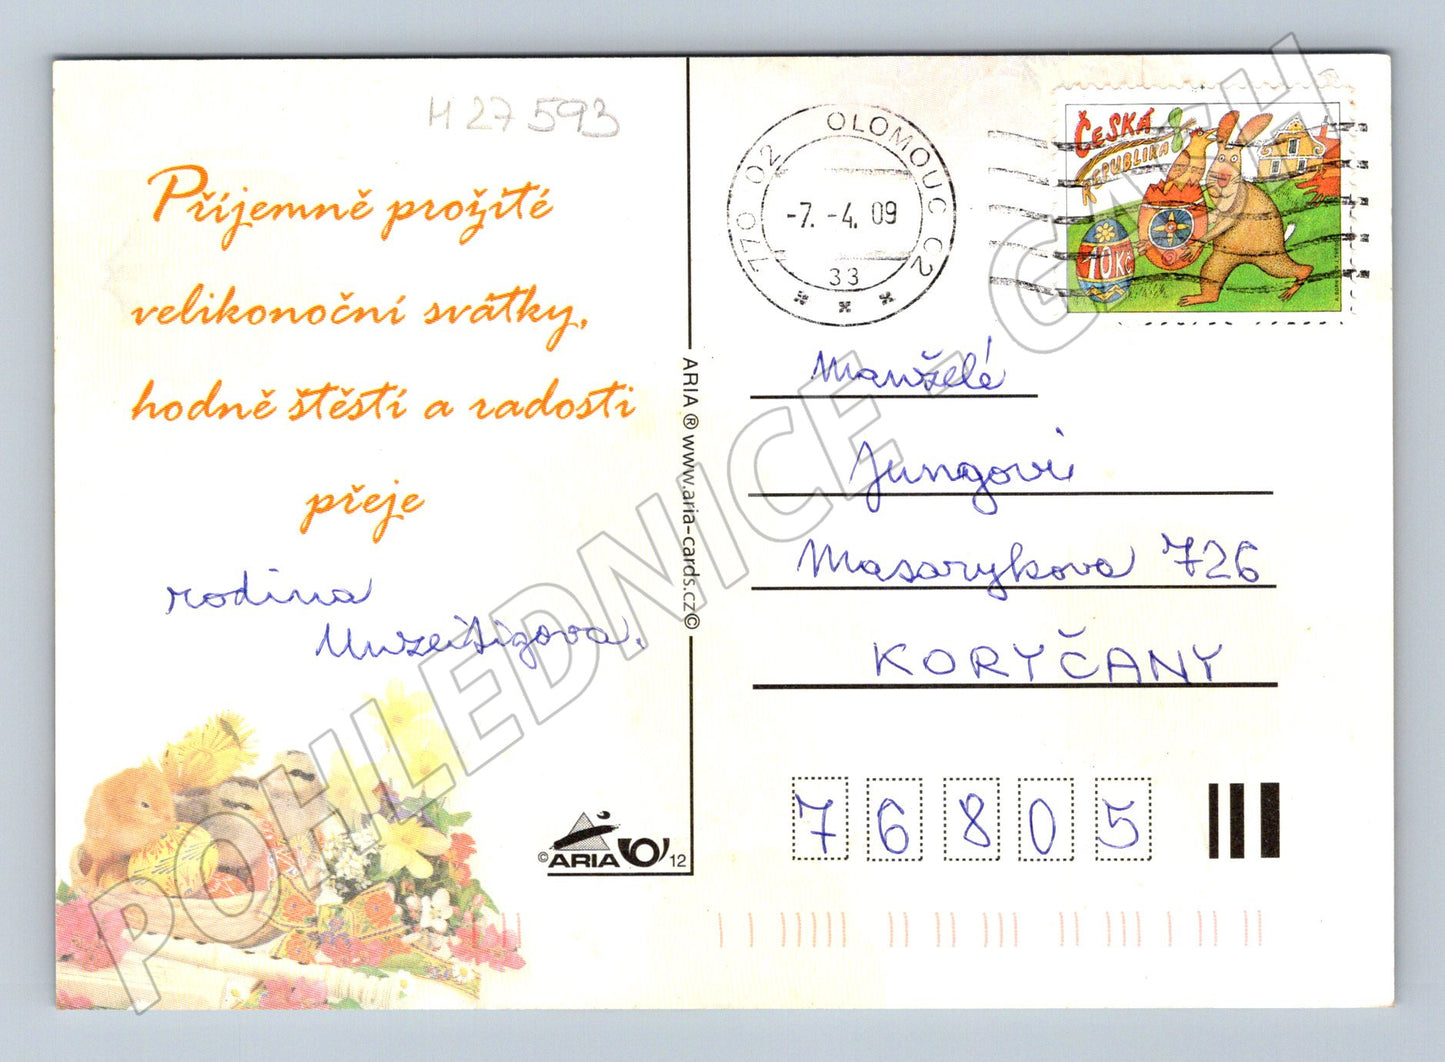 H 27 593
Příjemně prožité
velikonoční svátky,
hodně štěstí a radosti
přeje
rodina
©ARIA 12
ARIA ® www.aria-cards.cz©
770 02 OLOMOUC C2
-7. -4. 09
33
ČESKÁ
REPUBLIKA
10Kč
Manželé
Jungovi
Masarykova 726
KORYČANY
76805
POHLEDNICE - GACH